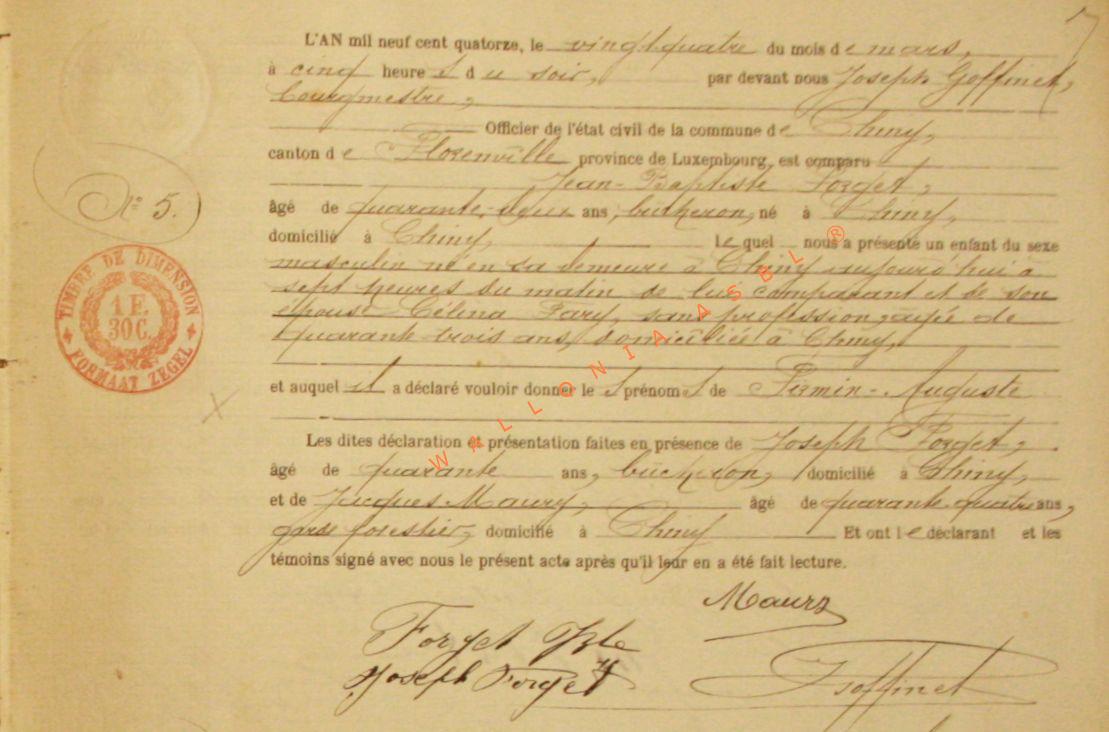 L'AN mil neuf cent quatorze, le vingt quatre du mois de mars,
à cinq heures du soir, par devant nous Joseph Goffinet,
bourgmestre,
Officier de l'état civil de la commune de Chiny,
canton de Florenville province de Luxembourg, est comparu
Jean-Baptiste Forget,
N° 5.
âgé de quarante ans, bûcheron, né à Chiny,
domicilié à Chiny, Lequel nous a présenté un enfant du sexe
masculin né en sa demeure à Chiny aujourd'hui à
sept heures du matin de lui comparant et de son
épouse Célina Pary, sans profession, agée de
quarante trois ans, domiciliés à Chiny,
TIMBRE DE DIMENSION
1 F.
30 C.
FORMAAT ZEGEL
et auquel il a déclaré vouloir donner les prénoms de Firmin-Auguste
Les dites déclaration et présentation faites en présence de Joseph Forget,
âgé de quarante ans, bûcheron, domicilié à Chiny,
et de Jacques Maury, âgé de quarante quatre ans,
garde forestier, domicilié à Chiny Et ont le déclarant et les
témoins signé avec nous le présent acte après qu'il leur en a été fait lecture.
Maury
Forget Bte
Joseph Forget
J Goffinet
WALLONIA ASBL ®